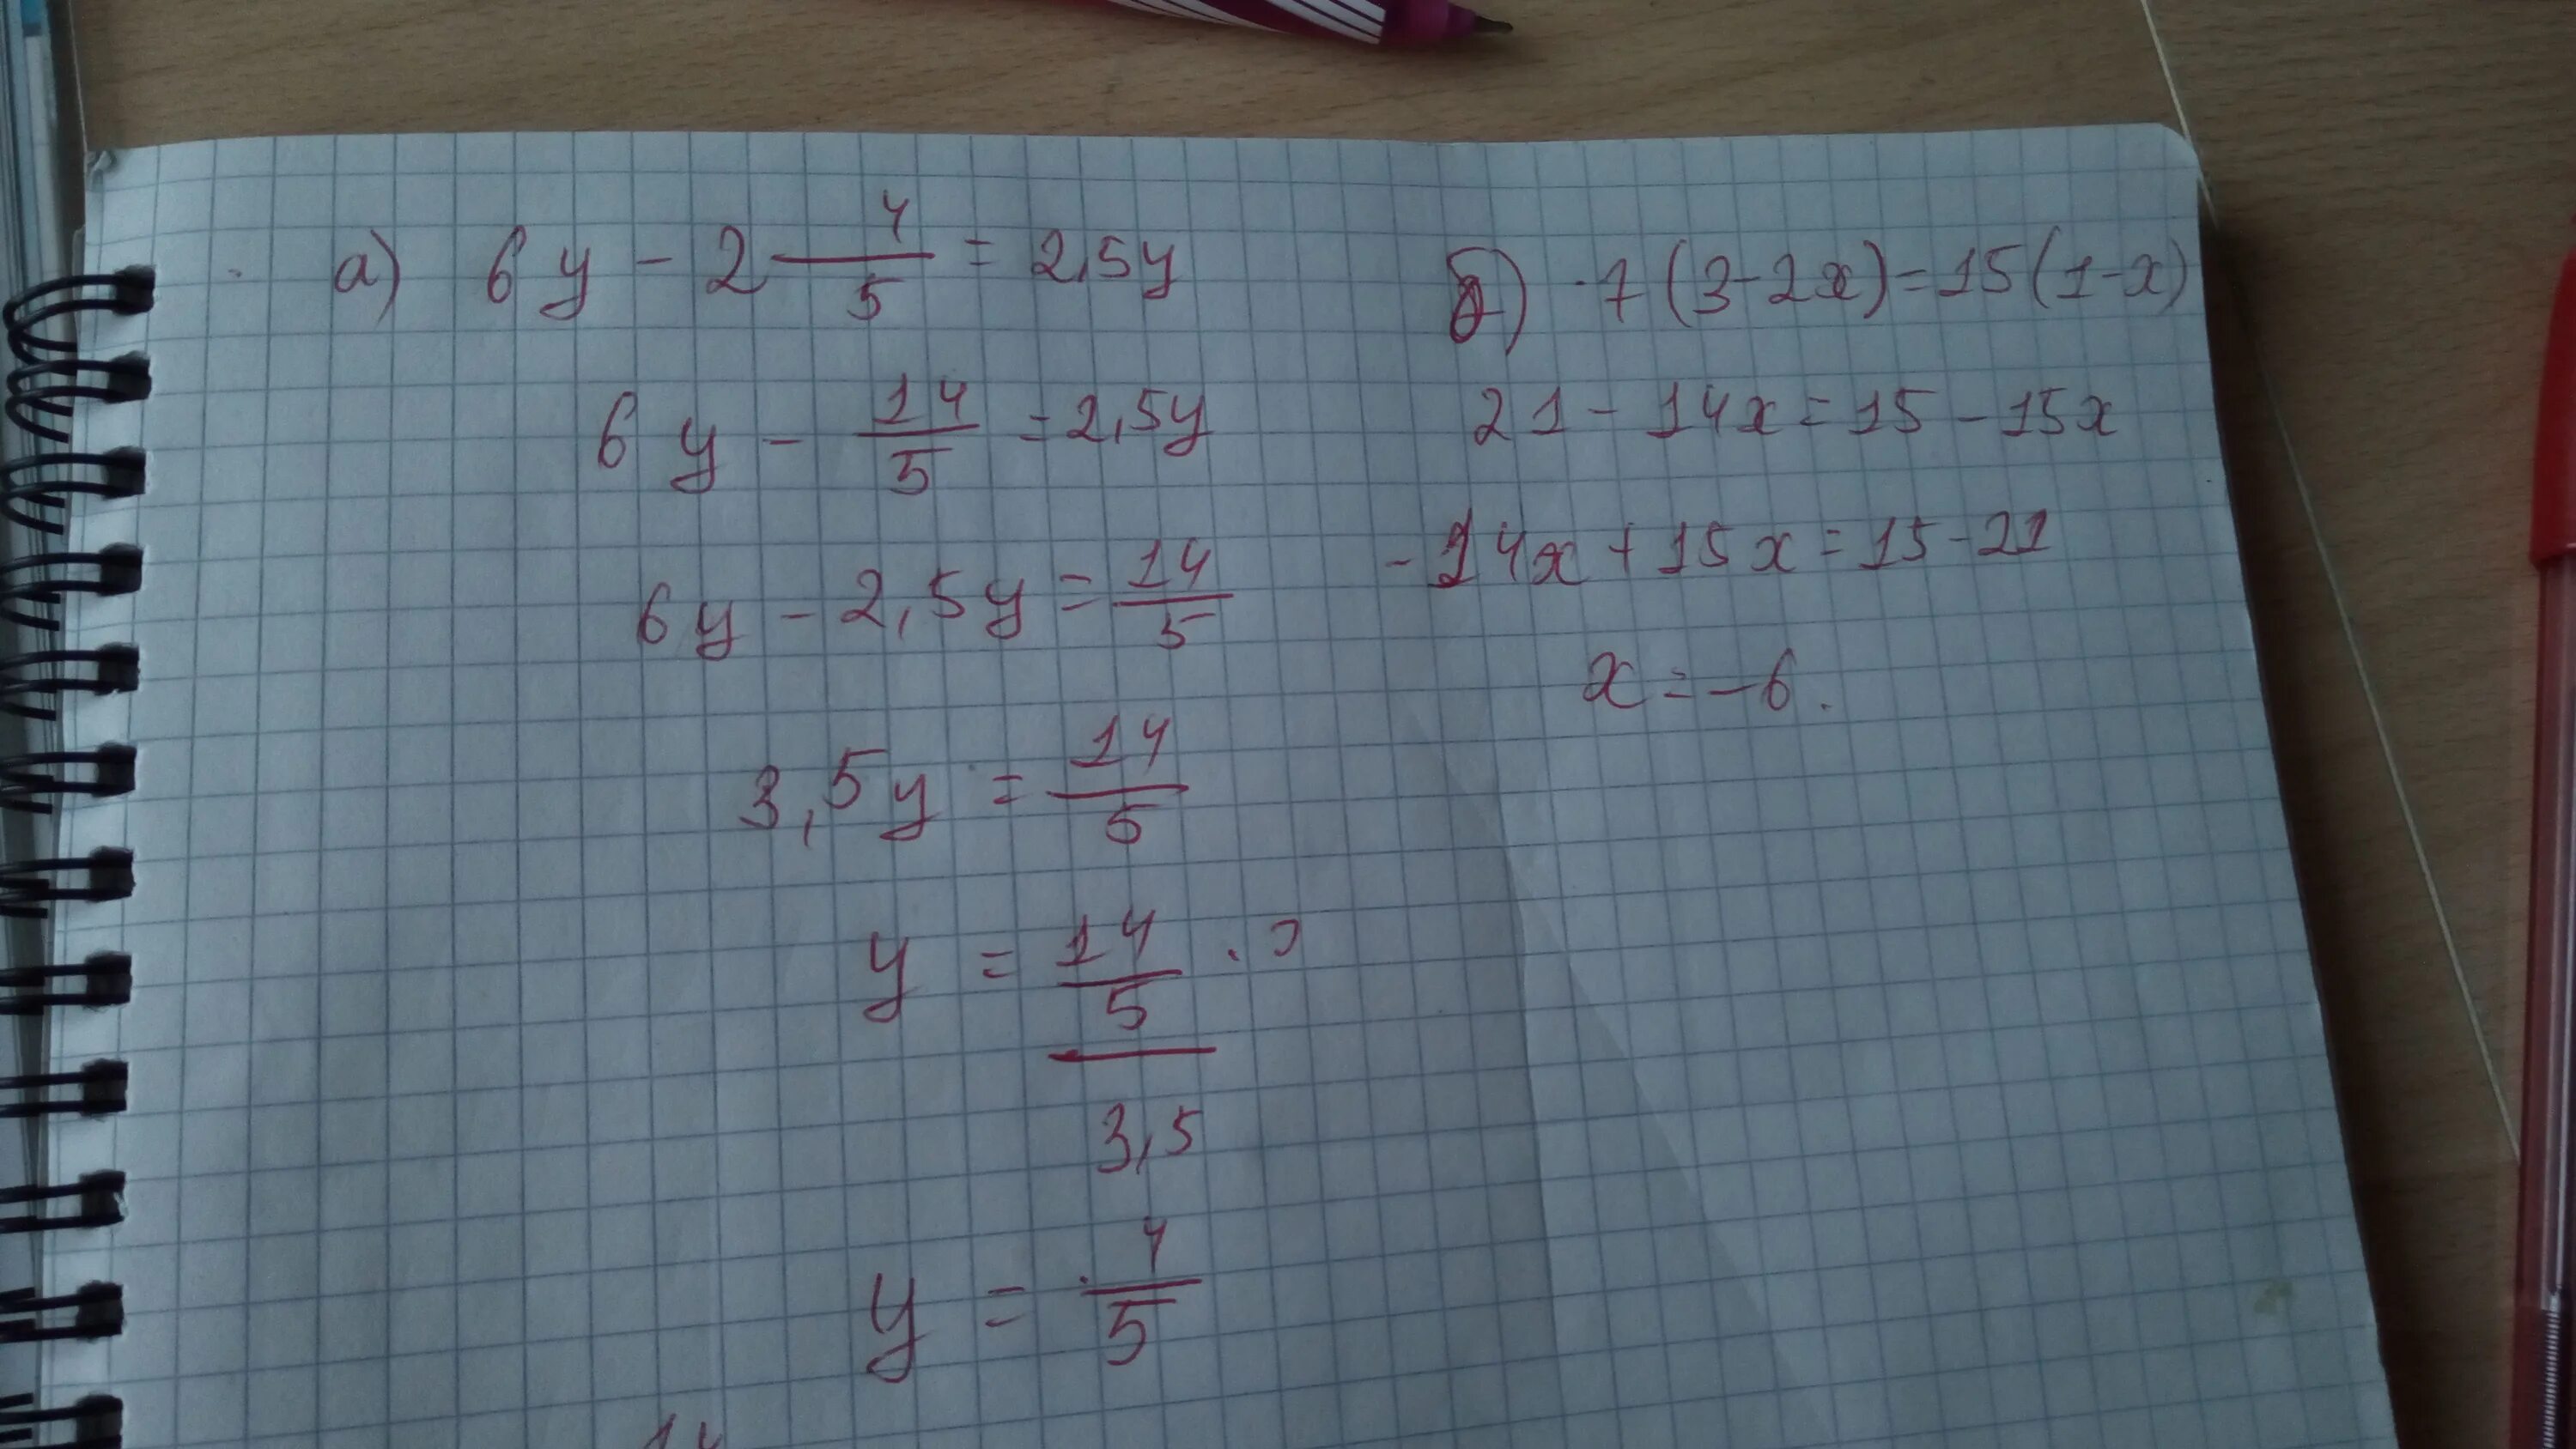 а) 6y - 2 4/5 = 2,5y
6y - 14/5 = 2,5y
6y - 2,5y = 14/5
3,5y = 14/5
y = 14/5 ·
3,5
y = 4/5
б) 7(3-2x)=15(1-x)
21 - 14x = 15 - 15x
-14x + 15x = 15 - 21
x = -6.